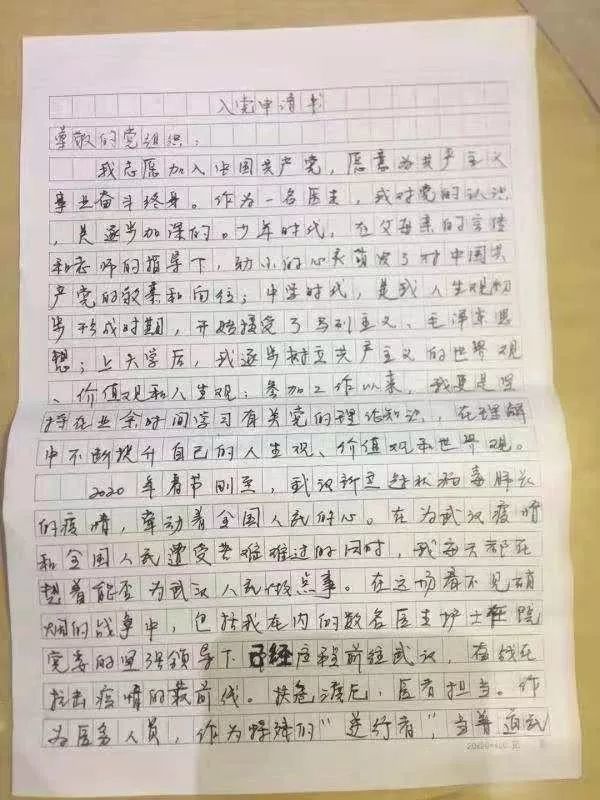 入党申请书
尊敬的党组织：
我志愿加入中国共产党，愿意为共产主义
事业奋斗终身。作为一名医生，我对党的认识
，是逐步加深的。少年时代，在父母亲的言传
和老师的指导下，幼小的心灵萌发了对中国共
产党的敬慕和向往；中学时代，是我人生观初
步形成时期，开始接受了马列主义、毛泽东思
想；上大学后，我逐步树立共产主义的世界观
、价值观和人生观；参加工作以来，我更是坚
持在业余时间学习有关党的理论知识，在理解
中不断提升自己的人生观、价值观和世界观。
2020年春节刚至，武汉新型冠状病毒肺炎
的疫情，牵动着全国人民的心。在为武汉疫情
和全国人民遭受苦难难过的同时，我每天都在
想着能否为武汉人民做点事。在这场看不见硝
烟的战争中，包括我在内的数名医生护士在院
党委的坚强领导下已经启程前往武汉，奋战在
抗击疫情的最前线。扶危渡厄，医者担当。作
为医务人员，作为特殊的“逆行者”，当普通民